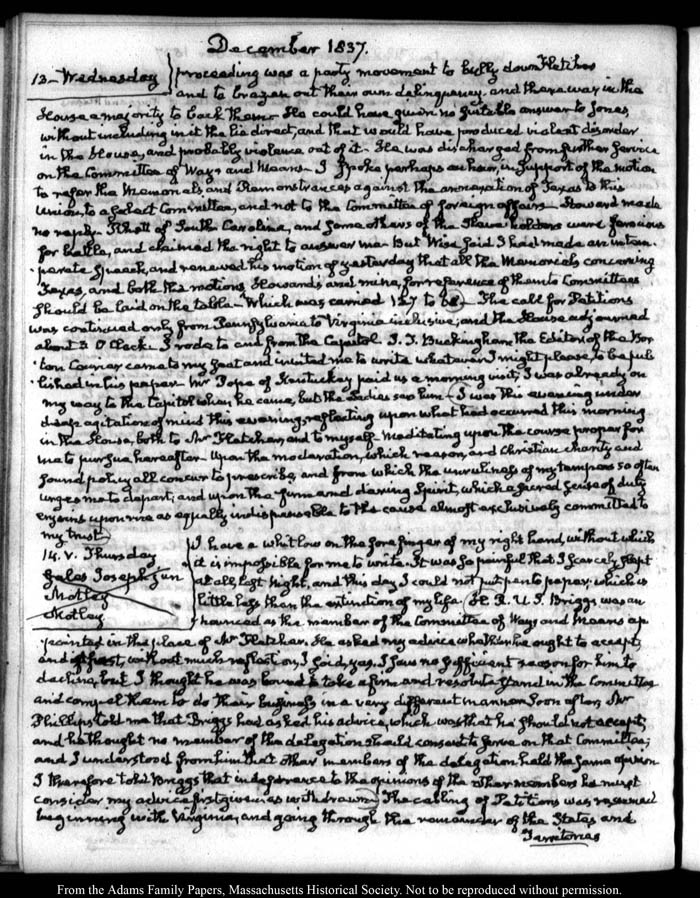 December 1837.
13 - Wednesday proceeding was a party movement to bully down Fletcher
and to brazen out their own delinquency, and there was in the
House a majority to back them - He could have given no suitable answer to Jones,
without including in it the lie direct, and that would have produced violent disorder
in the House, and probably violence out of it - He was discharged from further service
on the Committee of Ways and Means - I spoke perhaps an hour, in support of the motion
to refer the Memorials and Remonstrances against the annexation of Texas to this
Union, to a select Committee, and not to the Committee of foreign affairs - Howard made
no reply. Rhett of South Carolina, and some others of the Slave holders were ferocious
for battle, and claimed the right to answer me - But Wise said I had made an intem-
-perate speech, and renewed his motion of yesterday that all the Memorials concerning
Texas, and both the motions, Howard's and mine, for reference of them to Committees
should be laid on the table - Which was carried 127 to - The call for Petitions
was continued only from Pennsylvania to Virginia inclusive; and the House adjourned
about 3 O'Clock. I rode to and from the Capitol. J. T. Buckingham the Editor of the Bos-
-ton Courier came to my seat and invited me to write whatever I might please, to be pub-
-lished in his paper - Mr Pope of Kentuckey paid us a morning visit; I was already on
my way to the Capitol when he came, but the Ladies saw him - I was this evening under
deep agitation of mind this evening, reflecting upon what had occurred this morning
in the House, both to Mr Fletcher, and to myself - Meditating upon the course proper for
me to pursue hereafter - Upon the moderation, which reason, and Christian charity and
sound policy all concur to prescribe, and from which the unruliness of my tempers so often
urges me to depart; and upon the firm and daring Spirit, which a sacred sense of duty
enjoins upon me as equally indispensable to the cause almost exclusively committed to
my trust
14. V. Thursday
Gales Joseph jun
Motley
Motley
I have a whitlow on the fore finger of my right hand, without which
it is impossible for me to write. It was so painful that I scarcely slept
at all, last Night, and this day I could not put pen to paper, which is
little less than the extinction of my life. H. R. U. S. Briggs was an-
nounced as the member of the Committee of Ways and Means ap-
pointed in the place of Mr Fletcher. He asked my advice whether he ought to accept;
and at first, without much reflection, I said, yes. I saw no sufficient reason for him to
decline, but I thought he was bound to take a firm and resolute stand in the Committee
and compel them to do their business in a very different manner. Soon after, Mr
Phillips told me that Briggs had asked his advice, which was that he should not accept;
and he thought no member of the delegation should consent to serve on that Committee;
and I understood from him that other members of the delegation held the same opinion
I therefore told Briggs that in deference to the opinions of the other members he must
consider my advice first given as withdrawn. The calling of Petitions was resumed
beginning with Virginia, and going through the remainder of the States and
Territories
From the Adams Family Papers, Massachusetts Historical Society. Not to be reproduced without permission.